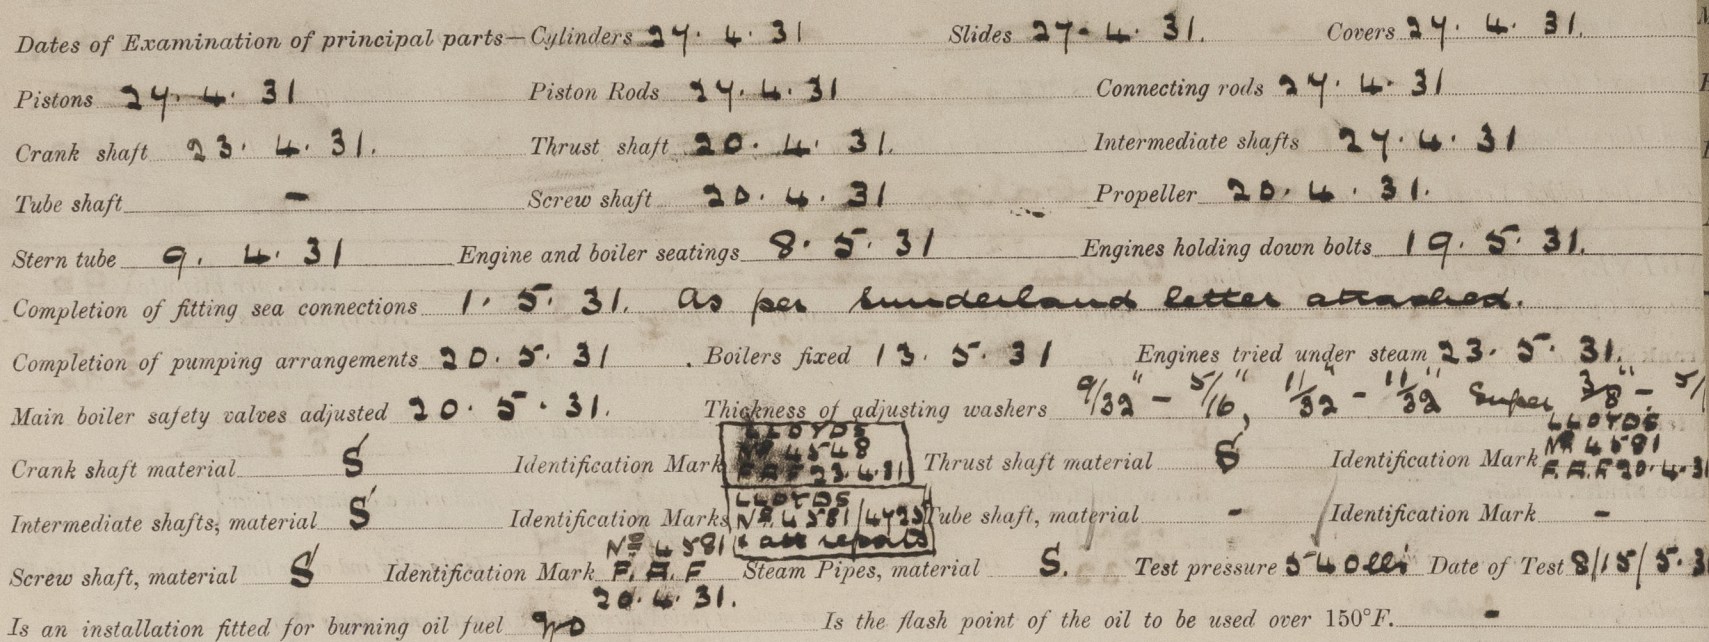 Dates of Examination of principal parts—Cylinders 27. 4. 31 Slides 27. 4. 31. Covers 27. 4. 31.
Pistons 27. 4. 31 Piston Rods 27. 4. 31 Connecting rods 27. 4. 31
Crank shaft 23. 4. 31. Thrust shaft 20. 4. 31. Intermediate shafts 27. 4. 31
Tube shaft - Screw shaft 20. 4. 31 Propeller 20. 4. 31.
Stern tube 9. 4. 31 Engine and boiler seatings 8. 5. 31 Engines holding down bolts 19. 5. 31.
Completion of fitting sea connections 1. 5. 31. As per Sunderland letter attached.
Completion of pumping arrangements 20. 5. 31. Boilers fixed 13. 5. 31 Engines tried under steam 23. 5. 31.
Main boiler safety valves adjusted 20. 5. 31. Thickness of adjusting washers 9/32" - 5/16", 11/32" - 11/32" Super 3/8" - 5/
Crank shaft material S Identification Mark LLOYDS Nº 4548 F.A.F 23.4.31 Thrust shaft material S Identification Mark LLOYDS Nº 4581 F.A.F 20.4.31
Intermediate shafts, material S Identification Marks LLOYDS Nº 4581/ Tube shaft, material - Identification Mark -
Screw shaft, material S Identification Mark Nº 4581 F.A.F 20.4.31. Steam Pipes, material S. Test pressure 540 lbs Date of Test 8/15/5.3
Is an installation fitted for burning oil fuel no Is the flash point of the oil to be used over 150°F. -